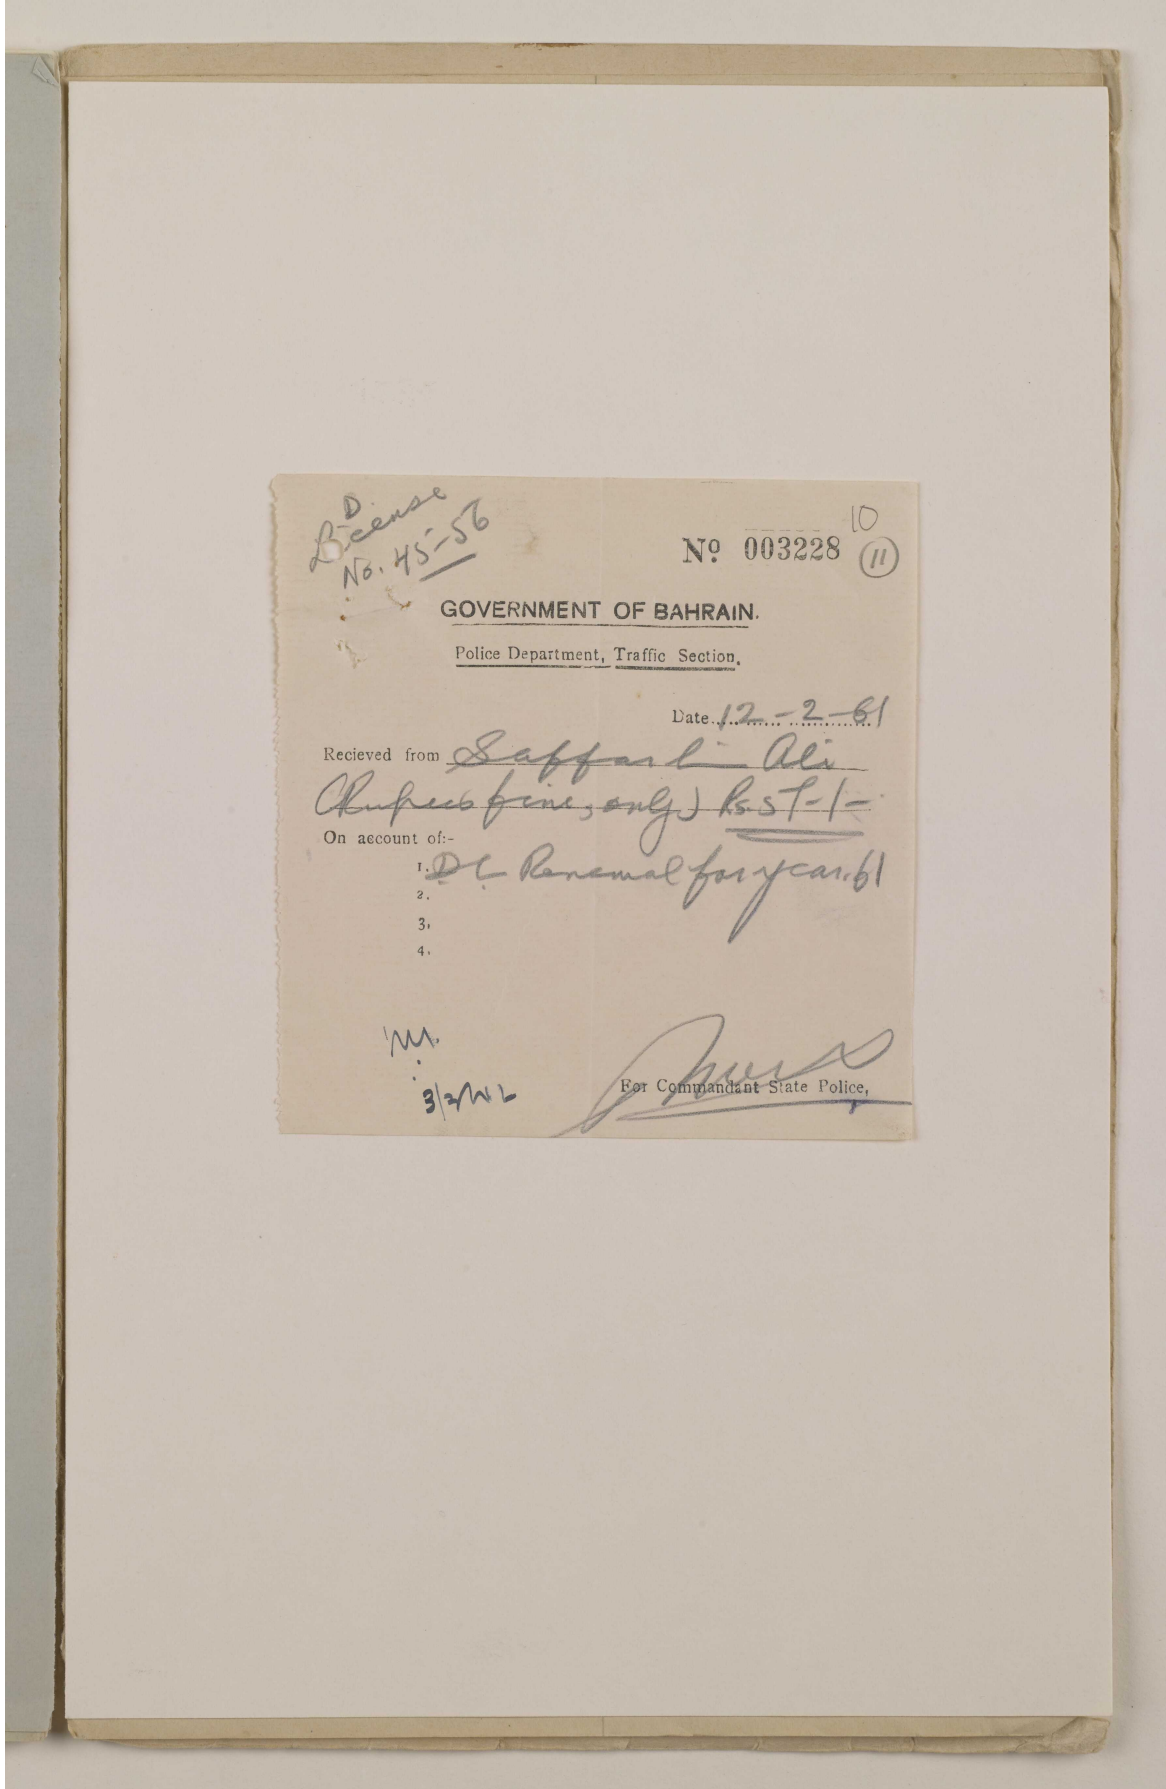 D.
License
No. 45-56
10
Nº 003228
11
GOVERNMENT OF BAHRAIN.
Police Department, Traffic Section.
Date 12-2-61
Recieved from Saffar Ali
(Rupees five, only) Rs. 5/-/-
On account of:-
1. DL Renewal for year. 61
2.
3.
4.
For Commandant State Police,